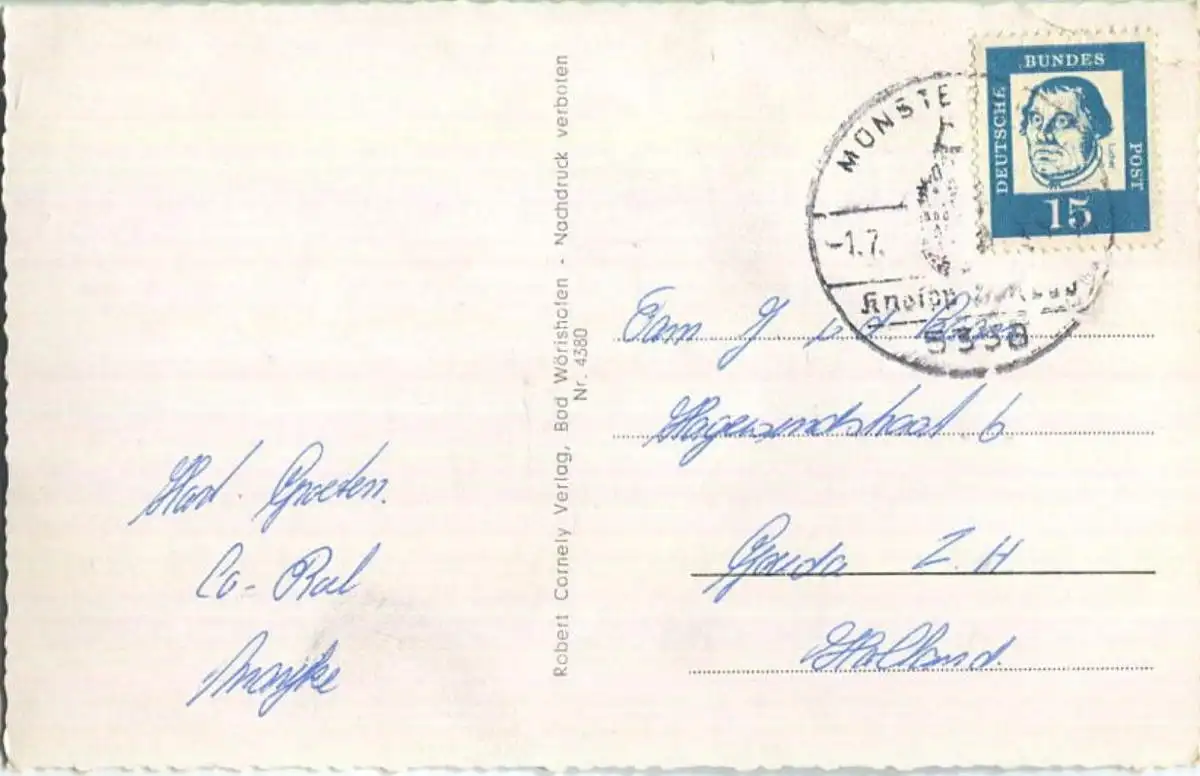 Hart. Groeten.
Co - Roel
Marijke
Robert Cornely Verlag, Bad Wörishofen - Nachdruck verboten
Nr. 4380
DEUTSCHE BUNDES POST
Luther
15
MÜNSTE
-1.7.
Kneipp
5358
Fam J v.d.
6
Gouda Z.H
Holland.